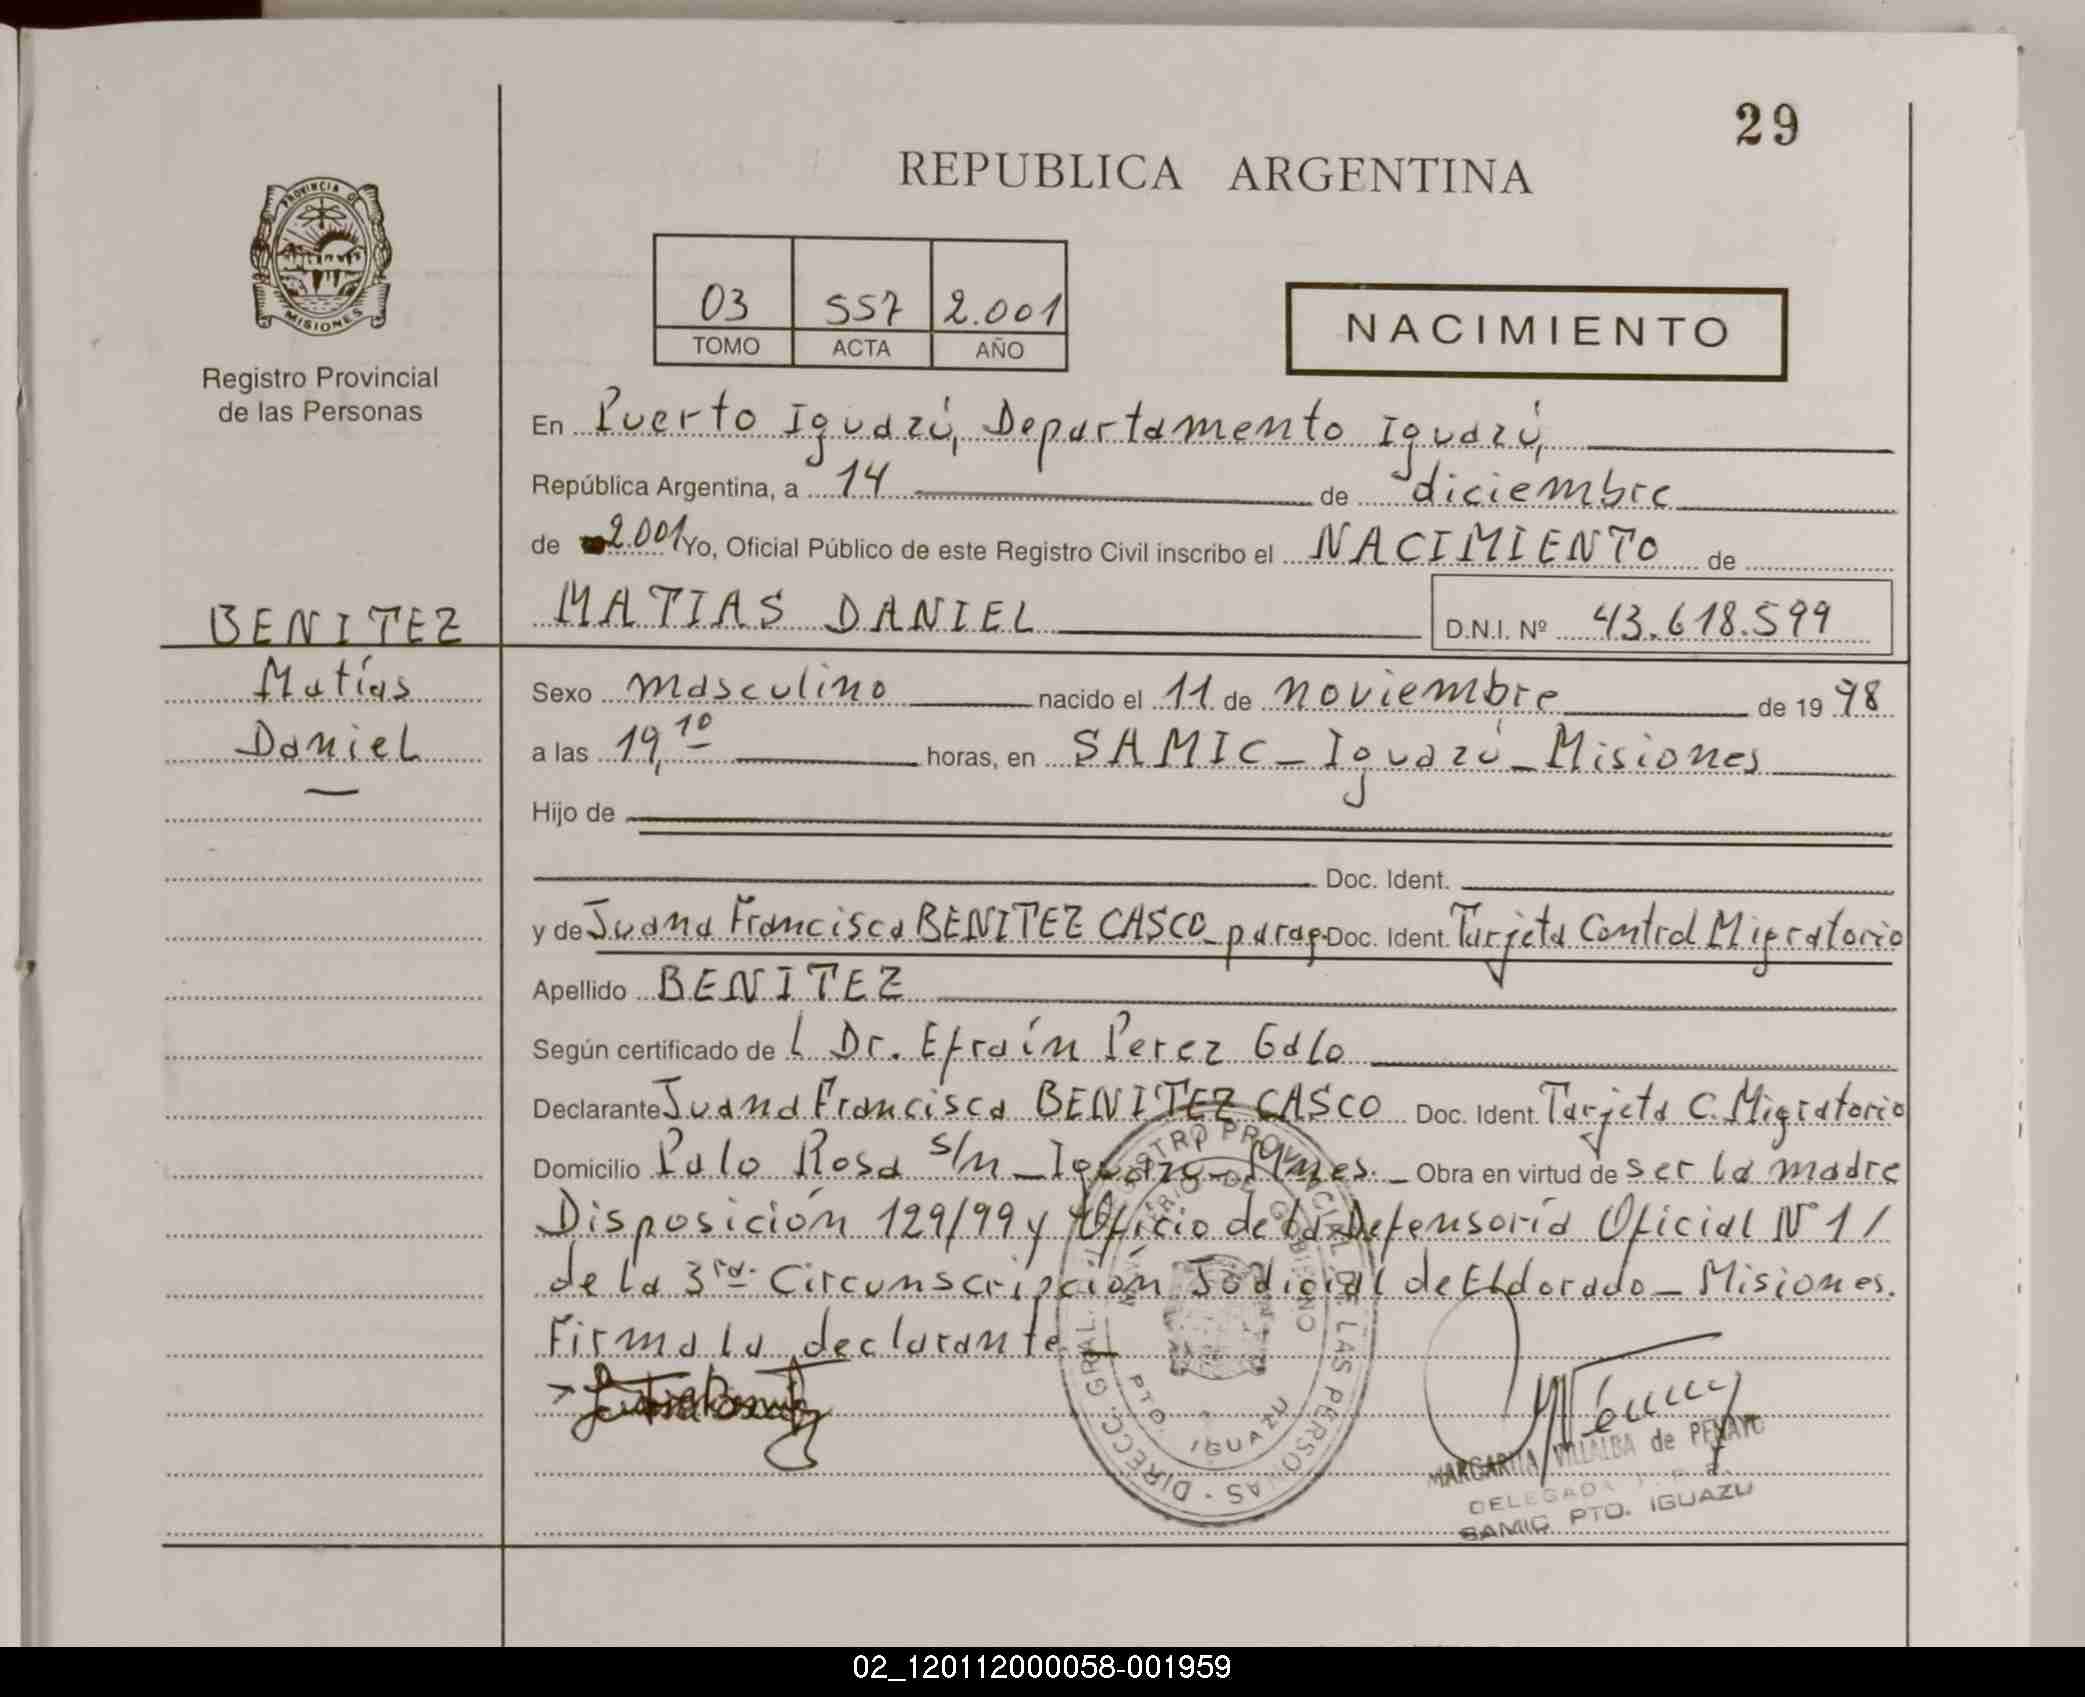 29
REPUBLICA ARGENTINA
PROVINCIA DE
MISIONES
Registro Provincial
de las Personas
03 557 2.001
TOMO ACTA AÑO
NACIMIENTO
En Puerto Iguazú, Departamento Iguazú,
República Argentina, a 14 de diciembre
de 2.001 Yo, Oficial Público de este Registro Civil inscribo el NACIMIENTO de
BENITEZ
MATIAS DANIEL D.N.I. Nº 43.618.599
Matías
Daniel
Sexo masculino nacido el 11 de noviembre de 19 98
a las 19,10 horas, en SAMIC - Iguazú - Misiones
Hijo de
Doc. Ident.
y de Juana Francisca BENITEZ CASCO - parag. Doc. Ident. Tarjeta Control Migratorio
Apellido BENITEZ
Según certificado de l Dr. Efraín Perez Galo
Declarante Juana Francisca BENITEZ CASCO Doc. Ident. Tarjeta C. Migratorio
Domicilio Palo Rosa s/n - Iguazú - Mnes. - Obra en virtud de ser la madre
Disposición 129/99 y Oficio de la Defensoría Oficial Nº 1 /
de la 3ra. Circunscripción Judicial de Eldorado - Misiones.
Firma la declarante -
DIRECC. GRAL. REGISTRO PROVINCIAL DE LAS PERSONAS
MINISTERIO DE GOBIERNO
PTO. IGUAZU
MARGARITA VILLALBA de PENAYO
DELEGADA
SAMIC PTO. IGUAZU
02_120112000058-001959